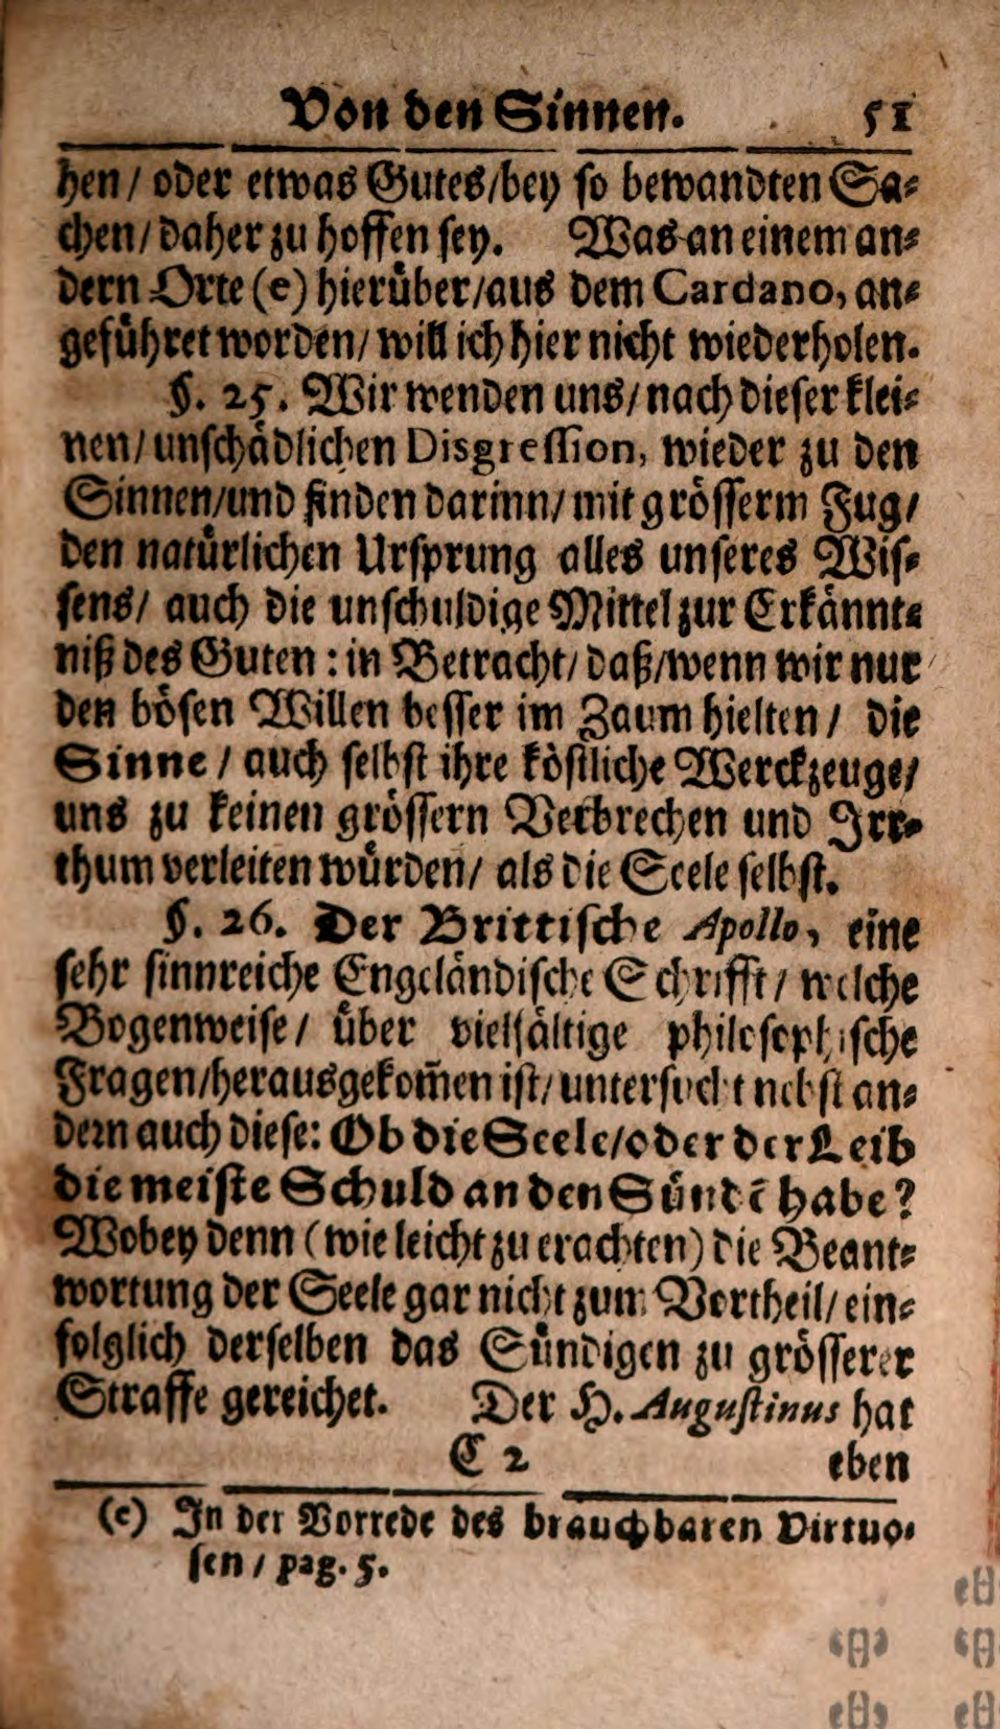 Von den Sinnen. 51
hen / oder etwas Gutes / bey so bewandten Sa⸗
chen / daher zu hoffen sey. Was an einem an⸗
dern Orte (e) hierüber / aus dem Cardano, an⸗
geführet worden / will ich hier nicht wiederholen.
§. 25. Wir wenden uns / nach dieser klei⸗
nen / unschädlichen Disgression, wieder zu den
Sinnen / und finden darinn / mit grösserm Fug /
den natürlichen Ursprung alles unseres Wis⸗
sens / auch die unschuldige Mittel zur Erkännt⸗
niß des Guten : in Betracht / daß / wenn wir nur
den bösen Willen besser im Zaum hielten / die
Sinne / auch selbst ihre köstliche Werckzeuge /
uns zu keinen grössern Verbrechen und Irr⸗
thum verleiten würden / als die Seele selbst.
§. 26. Der Brittische Apollo, eine
sehr sinnreiche Engeländische Schrifft / welche
Bogenweise / über vielfältige philosophische
Fragen / herausgekom̃en ist / untersucht nebst an⸗
dern auch diese: Ob die Seele / oder der Leib
die meiste Schuld an den Sündẽ habe?
Wobey denn (wie leicht zu erachten) die Beant⸗
wortung der Seele gar nicht zum Vortheil / ein⸗
folglich derselben das Sündigen zu grösserer
Straffe gereichet. Der H. Augustinus hat
C 2 eben
(e) In der Vorrede des brauchbaren Virtuo⸗
sen / pag. 5.